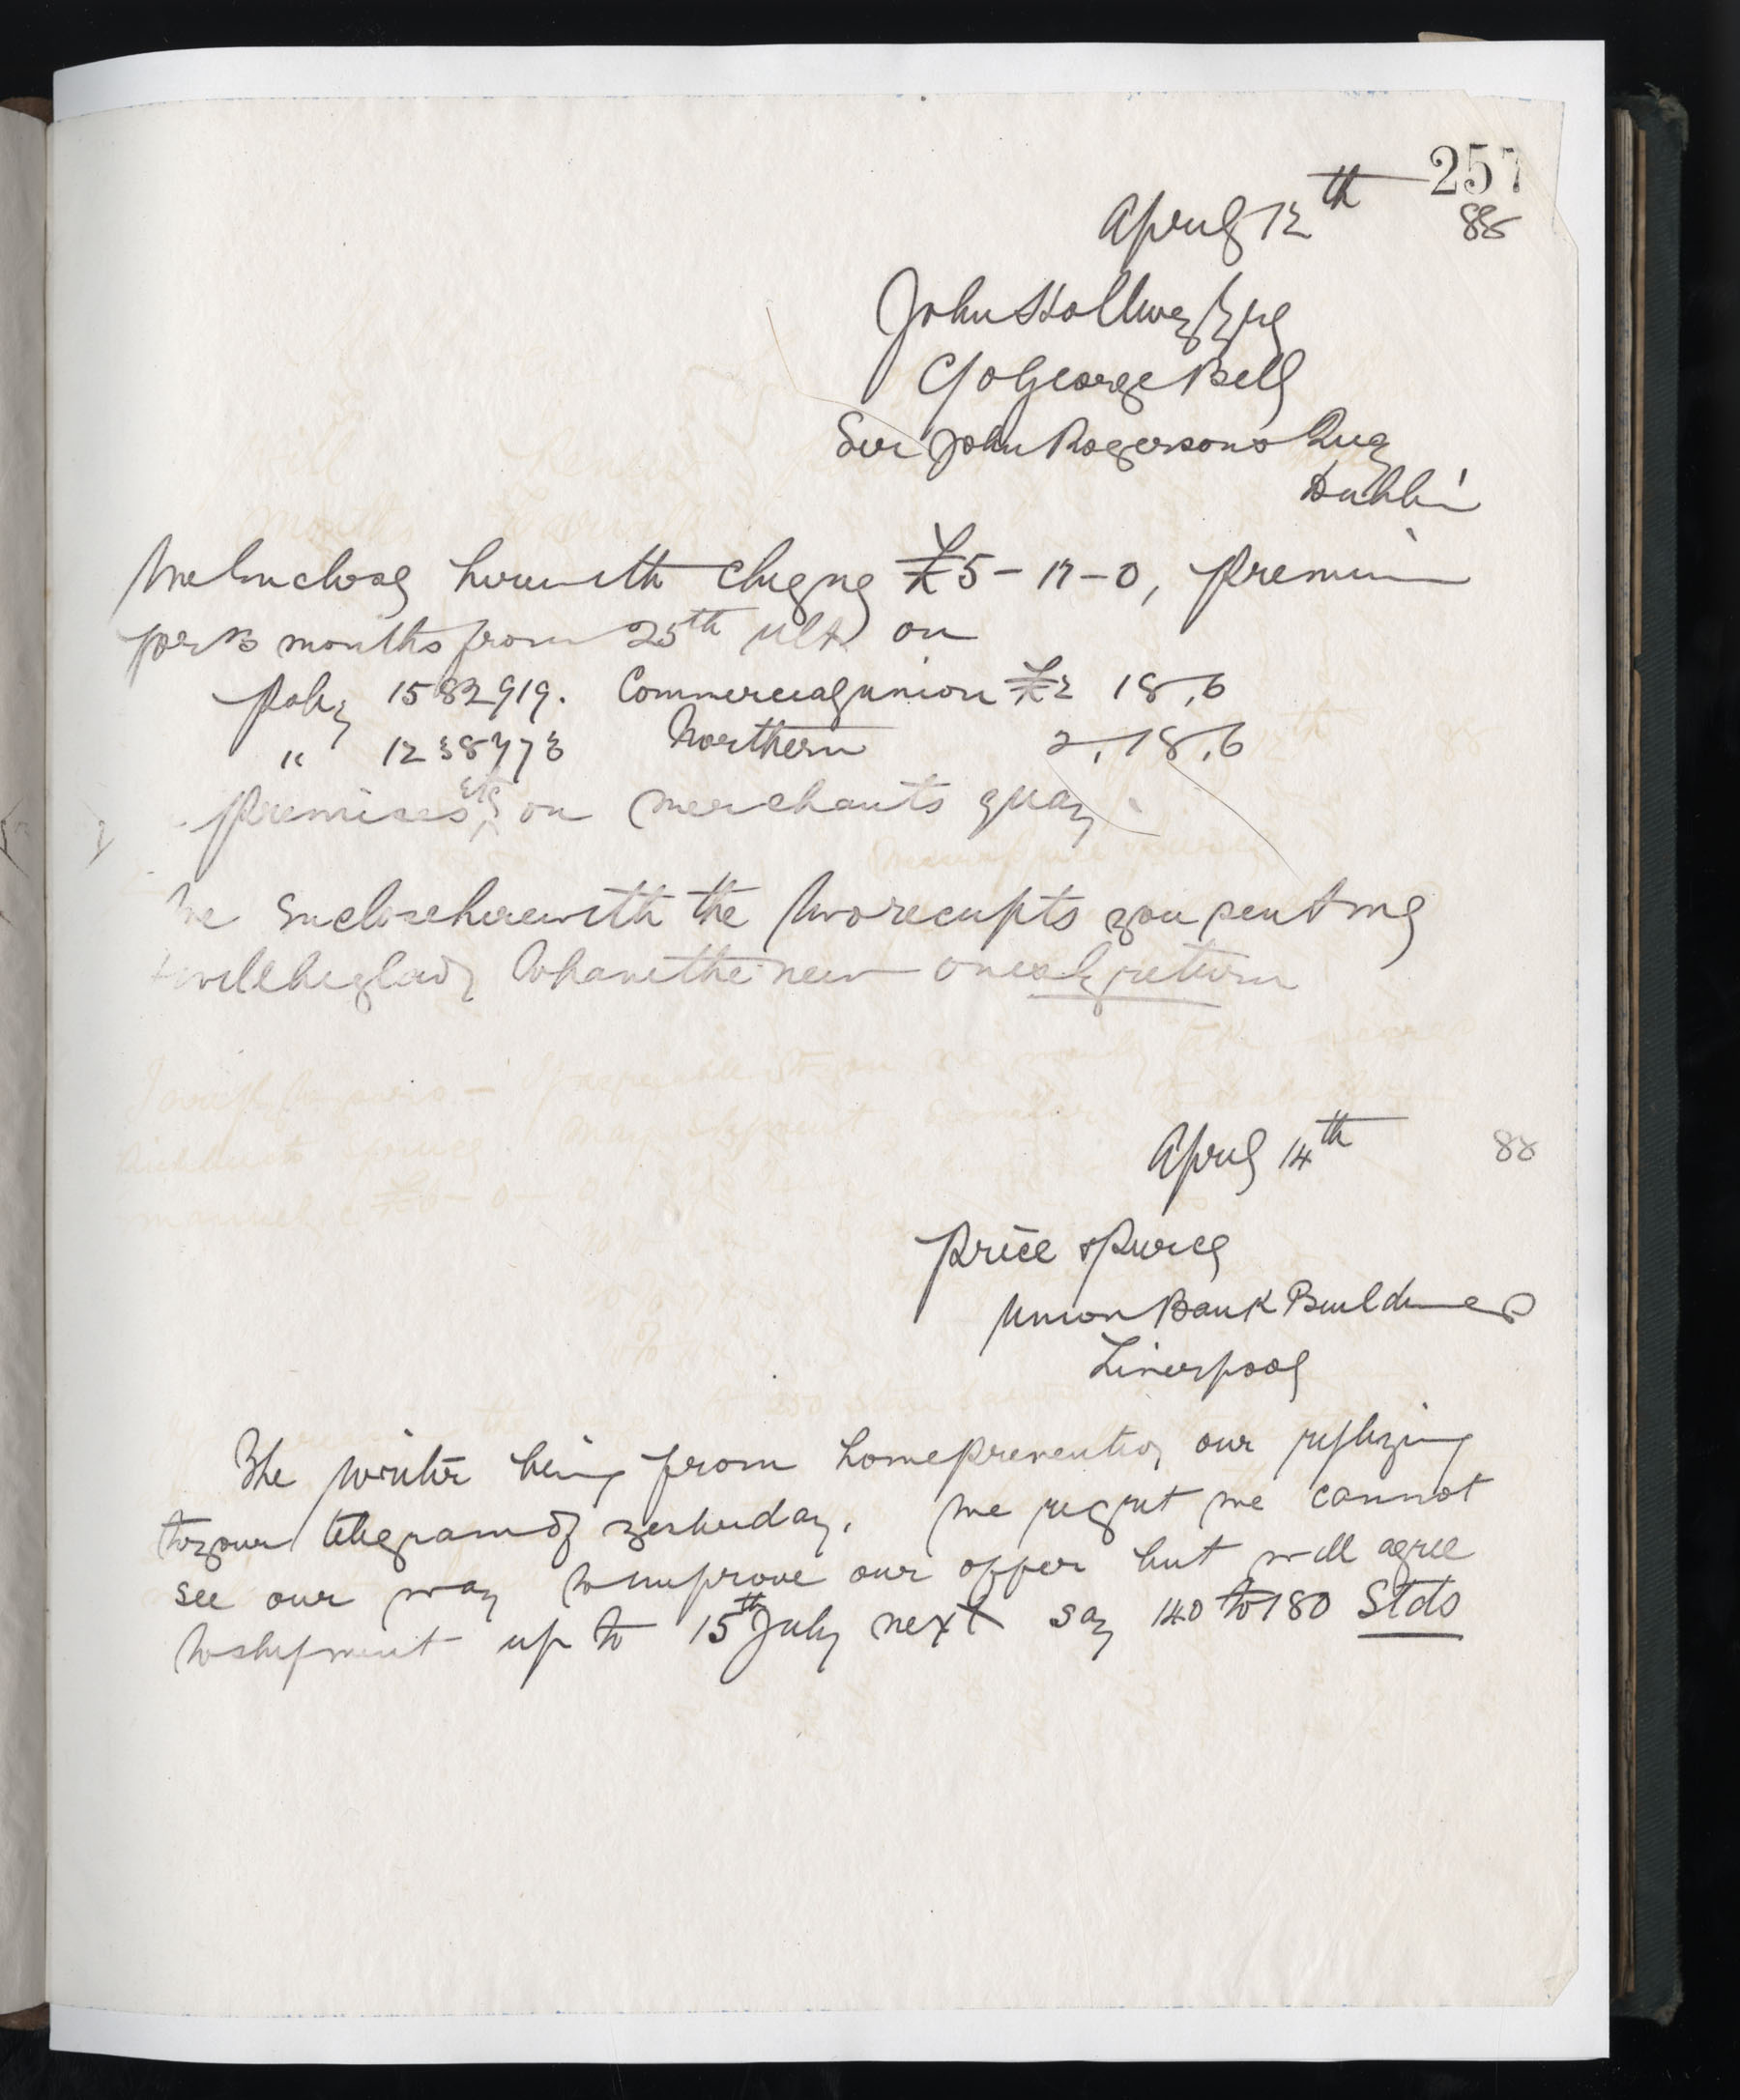 257
April 12th 88
John Hollwey Esq
C/o George Bell
Sir John Rogersons Quay
Dublin
We Enclose herewith cheque £5-17-0, premium
for 3 months from 25th ult on
Policy 1582919. Commercial union £2 18.6
" 1238773 Northern 2.18.6
premises etc on merchants quay
We Enclose herewith the two receipts you sent me
& will be glad to have the new ones by return
April 14th 88
Price & Pierce
Union Bank Buildings
Liverpool
The writer being from home prevented our replying
to your telegram of yesterday. We regret we cannot
see our way to improve our offer but will agree
to shipment up to 15th July next say 140 to 180 Stds